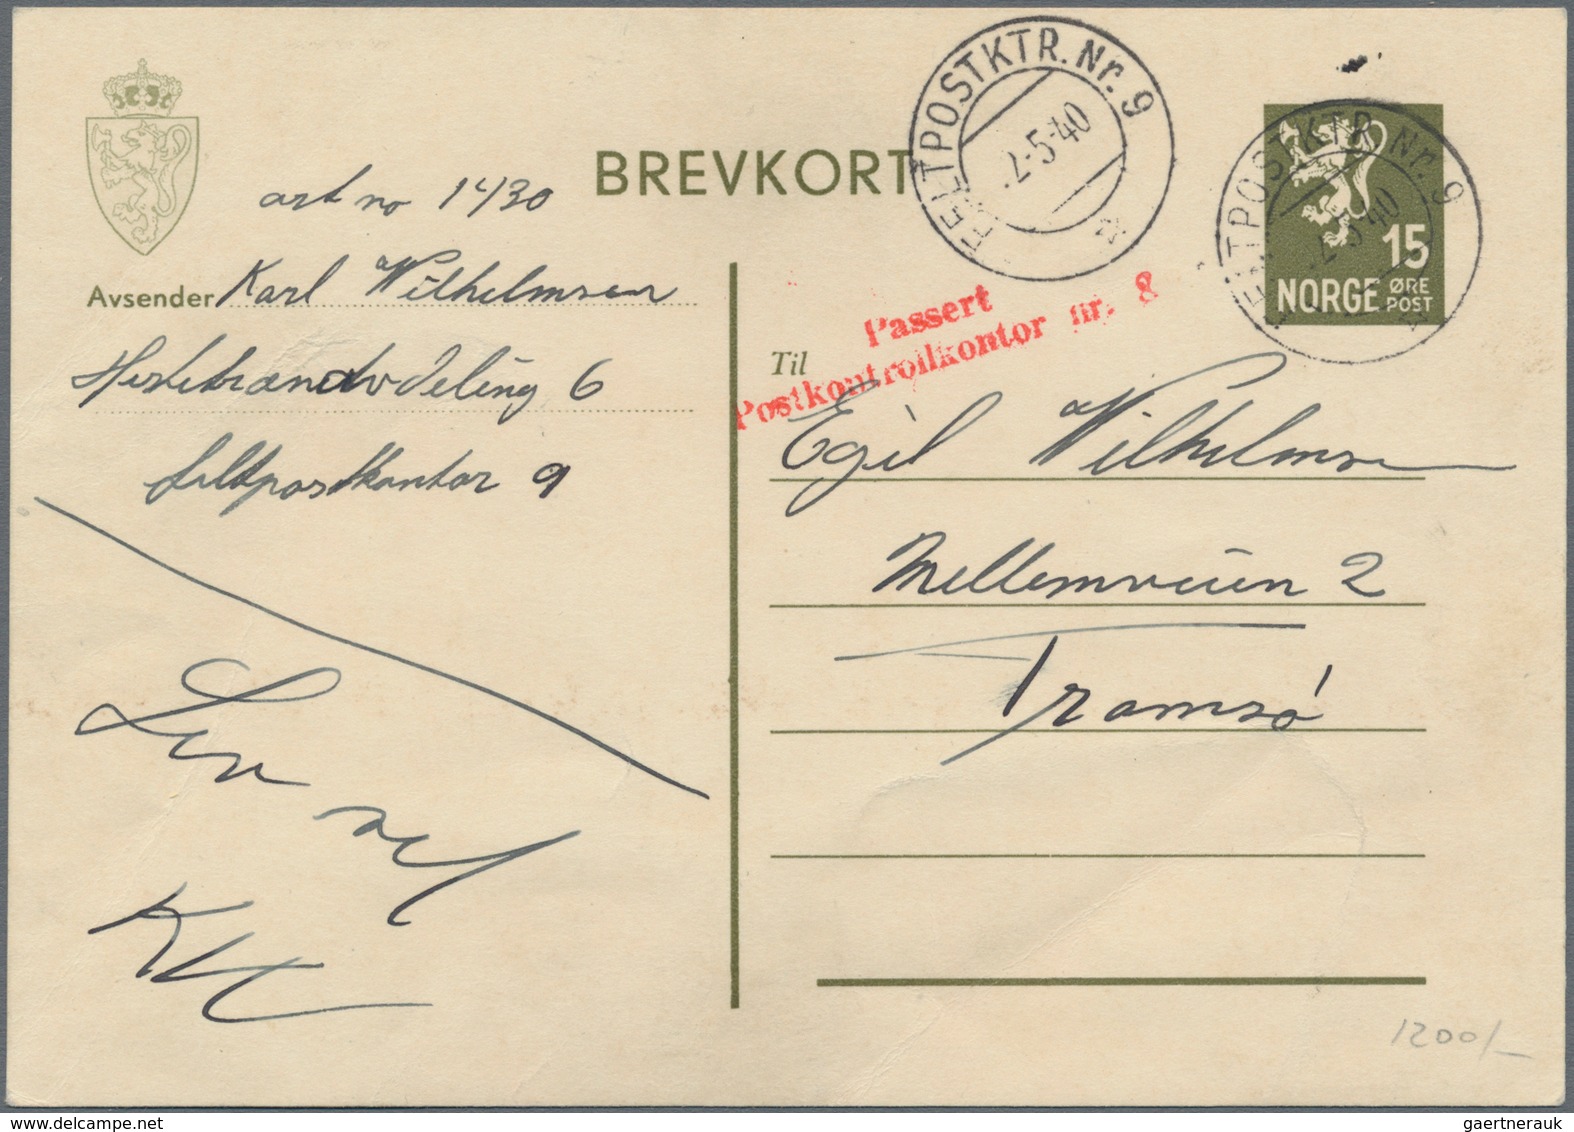 BREVKORT
FELTPOSTKTR. Nr. 9
2-5-40
FELTPOSTKTR. Nr. 9
2-5-40
15
NORGE ØRE
POST
art no 1430
Avsender Karl Wilhelmsen
6
Feltpostkontor 9
Passert
Postkontrollkontor nr. 8
Til
Egil Wilhelmsen
Mellemveien 2
Tromsø
1200/-
gaertnerauk